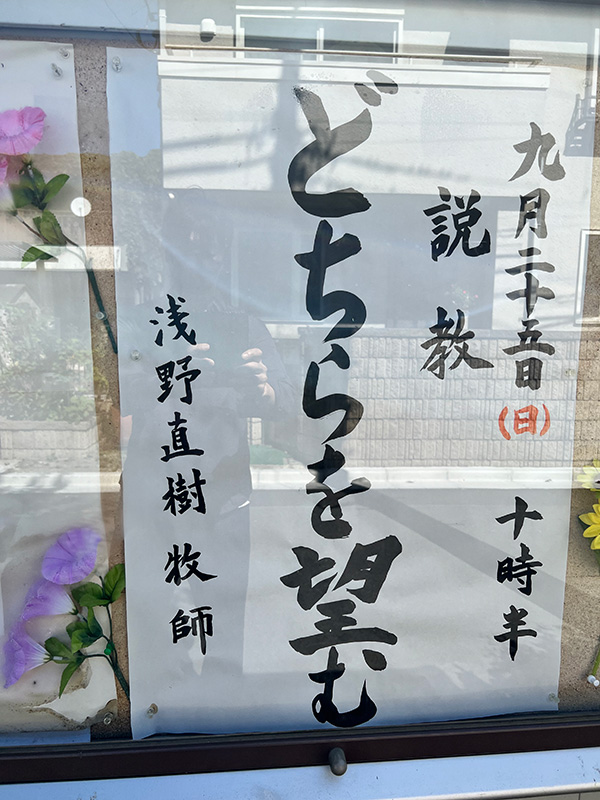 九月二十五日(日) 十時半
説教
どちらを望む
浅野直樹 牧師